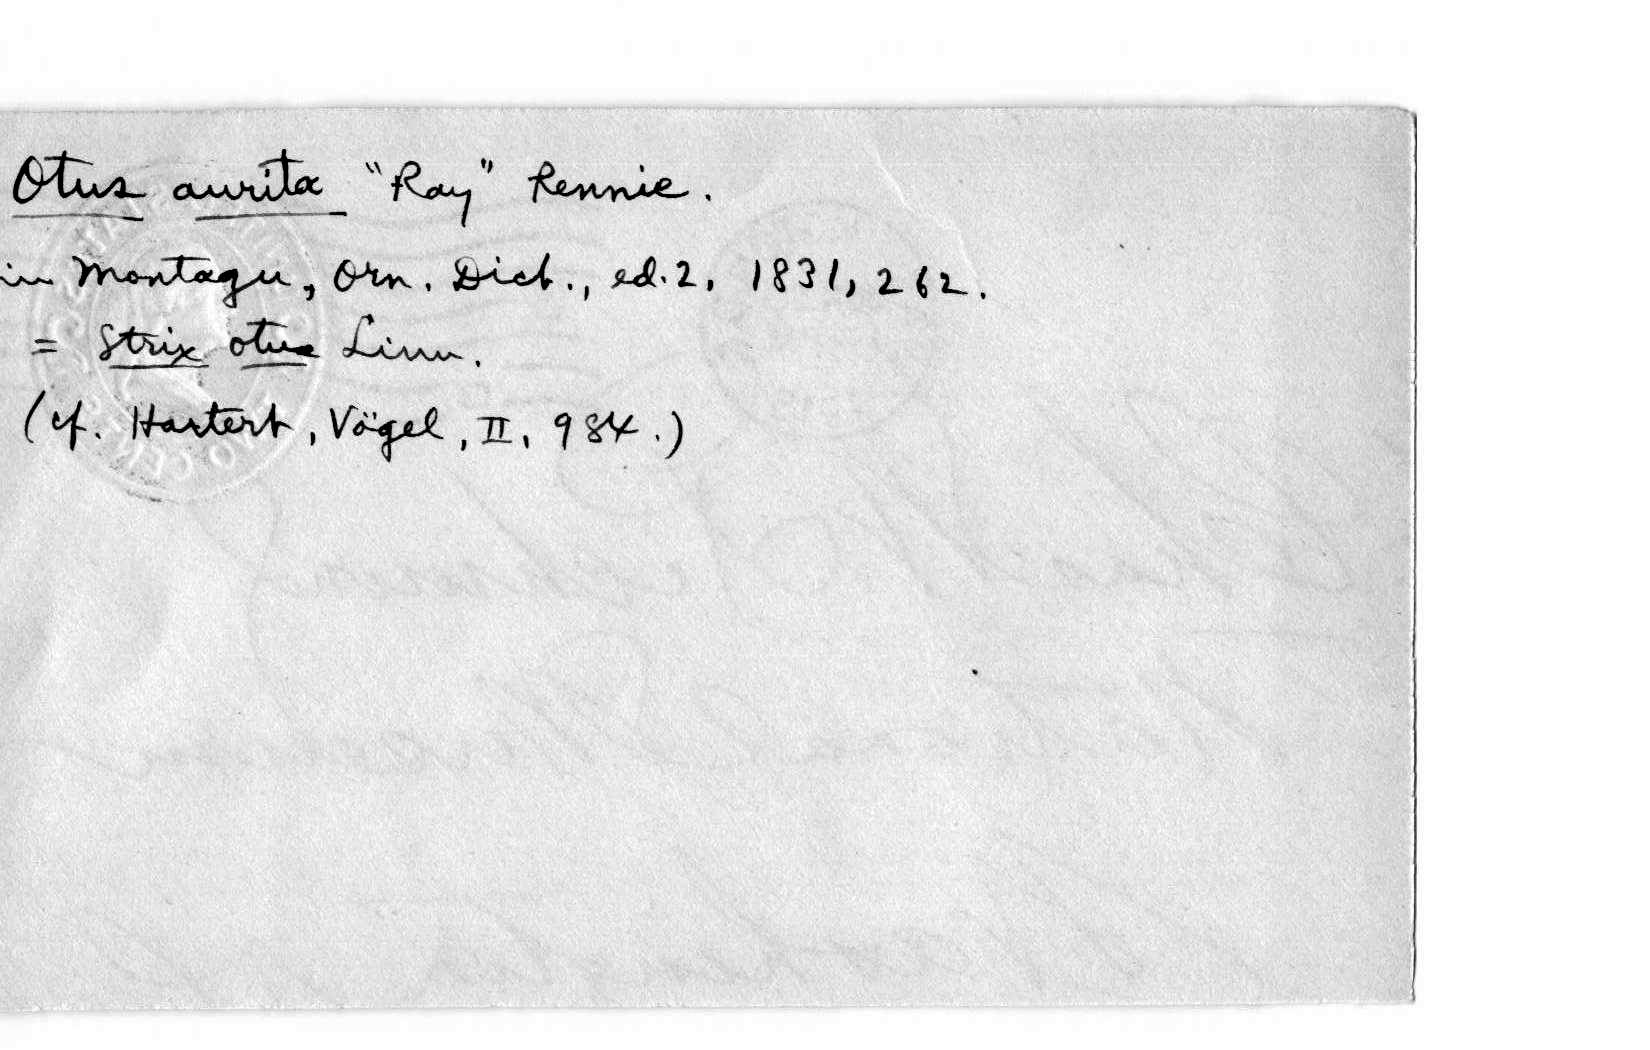 Otus aurita "Ray" Rennie.
in Montagu, Orn. Dict., ed. 2, 1831, 262.
= Strix otus Linn.
(cf. Hartert, Vögel, II, 984.)